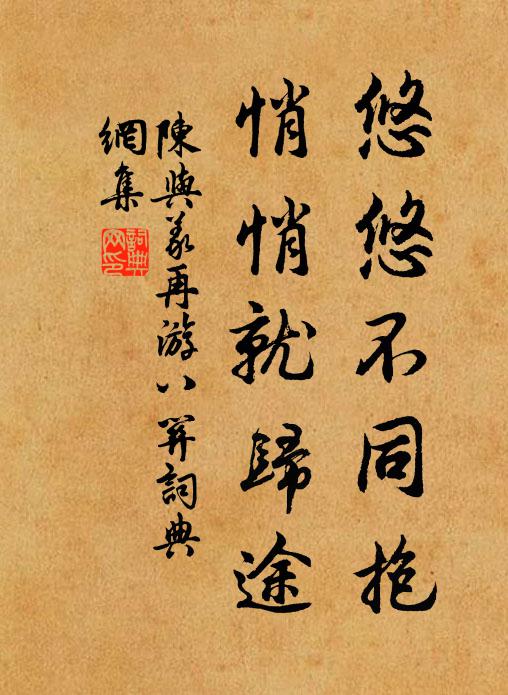 悠悠不同抱
悄悄就歸途
陳與義再游八關詞典
網集
詞典網印